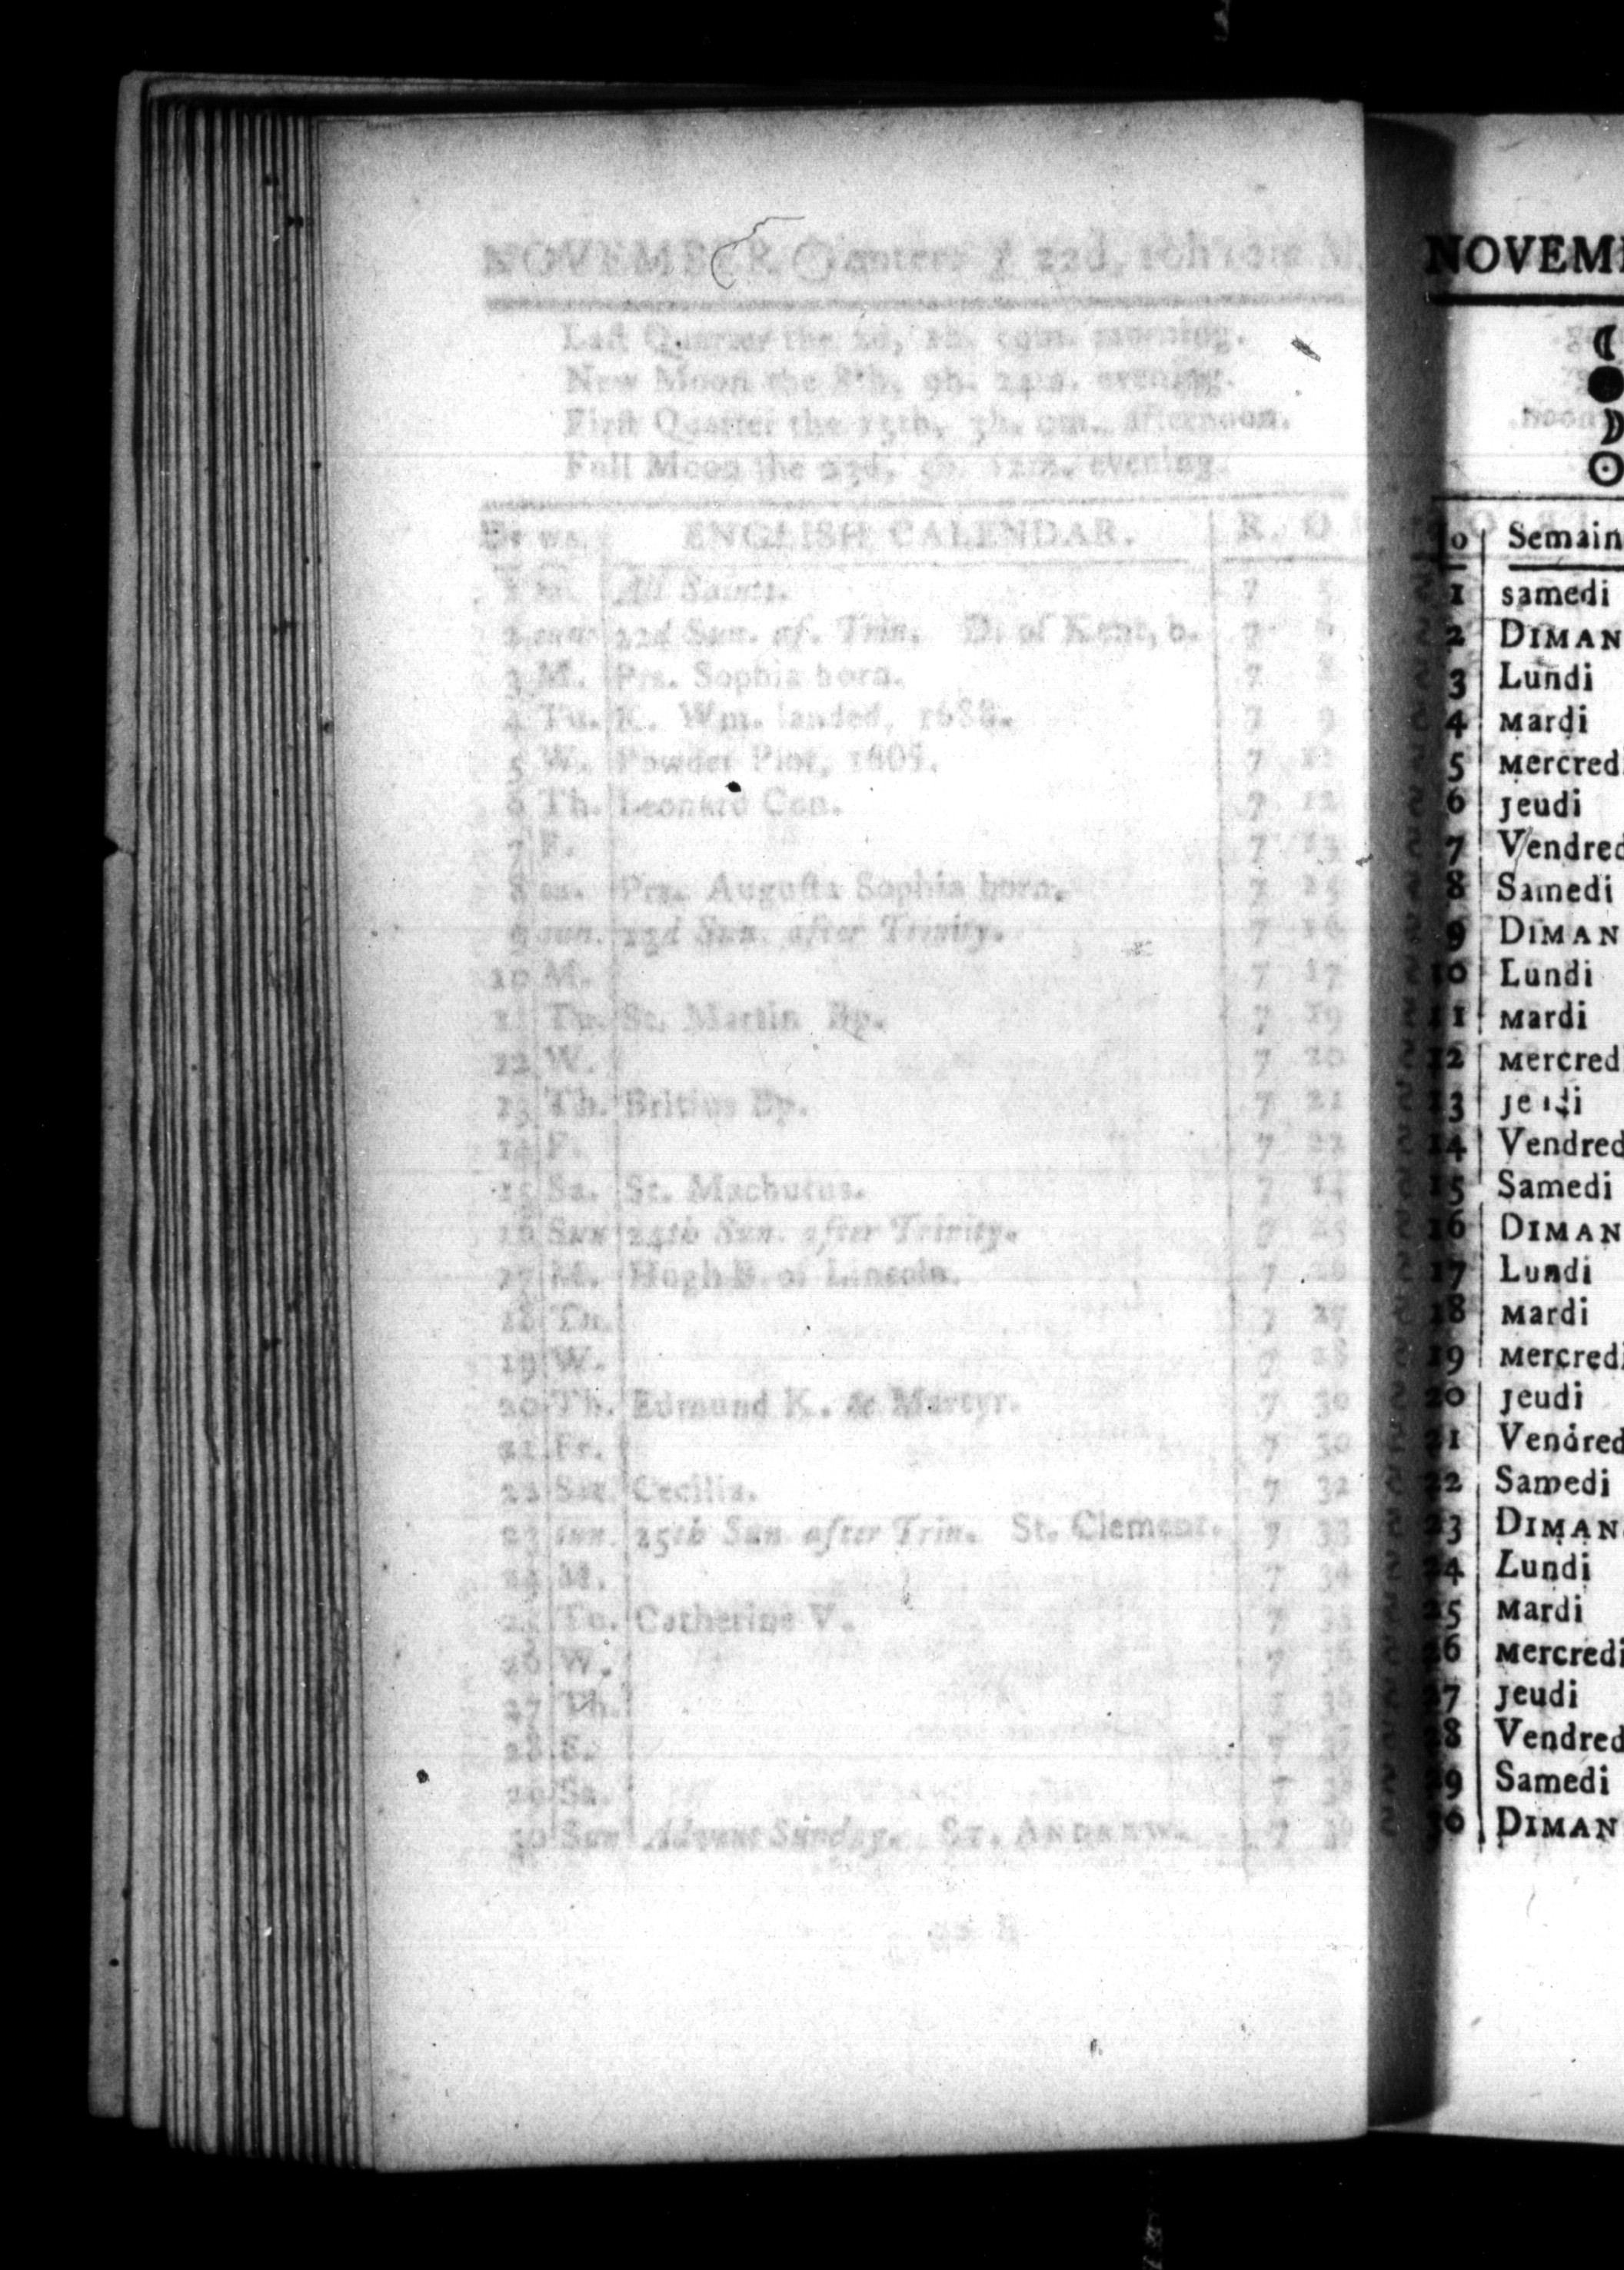 NOVEMBER ☉ enters ♐ 22d, 10h
Last Quarter the 2d, morning.
New Moon the 8th, 9h. 24m. evening.
First Quarter the 15th, 3h. 9m. afternoon.
Full Moon the 23d, 5h. 12m. evening.
ENGLISH CALENDAR. R. O
1 sa. All Saints. 7 5
2 sun 22d Sun. af. Trin. D. of Kent, b. 7 6
3 M. Prs. Sophia born. 7 8
4 Tu. K. Wm. landed, 1688. 7 9
5 W. Powder Plot, 1605. 7
6 Th. Leonard Con. 7 12
7 F. 7 13
8 sa. Prs. Augusta Sophia born. 7 15
9 sun. 23d Sun. after Trinity. 7 16
10 M. 7 17
11 Tu. St. Martin Bp. 7 19
12 W. 7 20
13 Th. Britius Bp. 7 21
14 F. 7 22
15 Sa. St. Machutus. 7 24
16 Sun 24th Sun. after Trinity. 7 25
17 M. Hugh B. of Lincoln. 7 26
18 Tu. 7 27
19 W. 7 28
20 Th. Edmund K. & Martyr. 7 30
21 Fr. 7 30
22 Sat. Cecilia. 7 32
23 sun. 25th Sun. after Trin. St. Clement. 7 33
24 M. 7 34
25 Tu. Catherine V. 7
26 W. 7
27 Th. 7
28 F. 7
29 Sa. 7
30 Sun Advent Sunday. ST. ANDREW. 7
NOVEM
☾
●
☽
☉
Semain
1 samedi
2 DIMAN
3 Lundi
4 Mardi
5 Mercred
6 Jeudi
7 Vendred
8 Samedi
9 DIMAN
10 Lundi
11 Mardi
12 Mercred
13 Jeudi
14 Vendred
15 Samedi
16 DIMAN
17 Lundi
18 Mardi
19 Mercredi
20 Jeudi
21 Vendred
22 Samedi
23 DIMAN
24 Lundi
25 Mardi
26 Mercredi
27 Jeudi
28 Vendred
29 Samedi
30 DIMAN